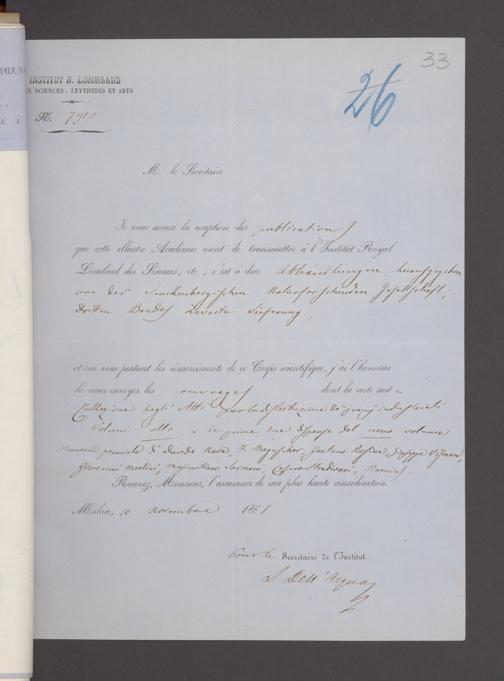 33
26
INSTITUT R. LOMBARD
SCIENCES, LETTRES ET ARTS
N.
M. le Secrétaire
Je vous accuse la réception des publications
que cette illustre Académie vient de transmettre à l'Institut Royal
Lombard des Sciences, etc., c'est à dire Abhandlungen, herausgegeben
von der Senckenbergischen Naturforschenden Gesellschaft,
Dritten Bandes zweite Lieferung,
et en vous portant les remerciments de ce Corps scientifique, j'ai l'honneur
de vous envoyer les ouvrages dont la note suit
Collezione degli Atti per la distribuzione di premj industriali
Volume due dispense del volume
Memorie premiate di Gaetano
Massimiliano
Recevez, Monsieur, l'assurance de ma plus haute considération
Milan, 10 novembre 1861
Pour le Secrétaire de l'Institut.
L Dell'Acqua